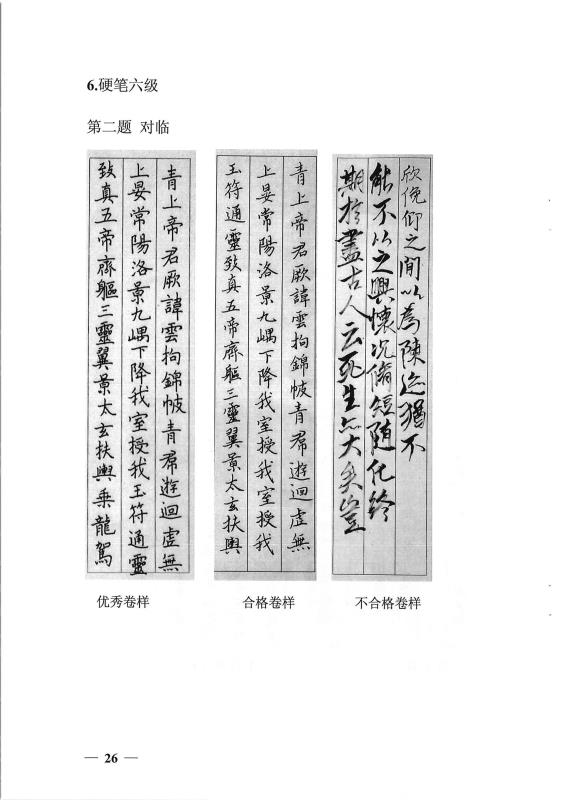 6.硬笔六级
第二题 对临
青上帝君厥諱雲拘錦帔青帬遊迴虛無
上晏常陽洛景九嵎下降我室授我玉符通靈
致真五帝齊軀三靈翼景太玄扶輿乘龍駕
青上帝君厥諱雲拘錦帔青帬遊迴虛無
上晏常陽洛景九嵎下降我室授我
玉符通靈致真五帝齊軀三靈翼景太玄扶輿
欣俛仰之間以為陳迹猶不
能不以之興懷況脩短隨化終
期於盡古人云死生亦大矣豈
优秀卷样
合格卷样
不合格卷样
— 26 —